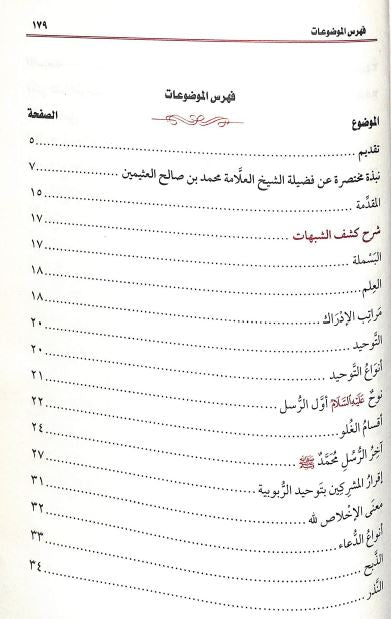 فهرس الموضوعات ١٧٩
فهرس الموضوعات
الموضوع الصفحة
تقديم ..... ٥
نبذة مختصرة عن فضيلة الشيخ العلَّامة محمد بن صالح العثيمين ..... ٧
المقدِّمة ..... ١٥
شرح كشف الشبهات ..... ١٧
البَسْملة ..... ١٧
العِلم ..... ١٨
مَراتِب الإِدْرَاك ..... ١٨
التَّوحيد ..... ٢٠
أنوَاعُ التَّوحيد ..... ٢٠
نُوحٌ عَلَيْهِ السَّلَامُ أوَّل الرُّسل ..... ٢١
أقسامُ الغُلو ..... ٢٢
آخِرُ الرُّسُلِ مُحَمَّدٌ ﷺ ..... ٢٤
إقرارُ المشرِكين بتَوحيد الرُّبوبية ..... ٢٧
معنَى الإخْلاص لله ..... ٣١
أنواعُ الدُّعاء ..... ٣٢
الذَّبح ..... ٣٣
النَّذر ..... ٣٤